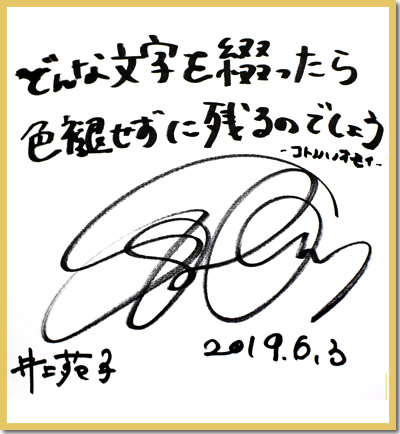 どんな文字を綴ったら
色褪せずに残るのでしょう
-コトノハノオモイ-
井上苑子
2019.6.3